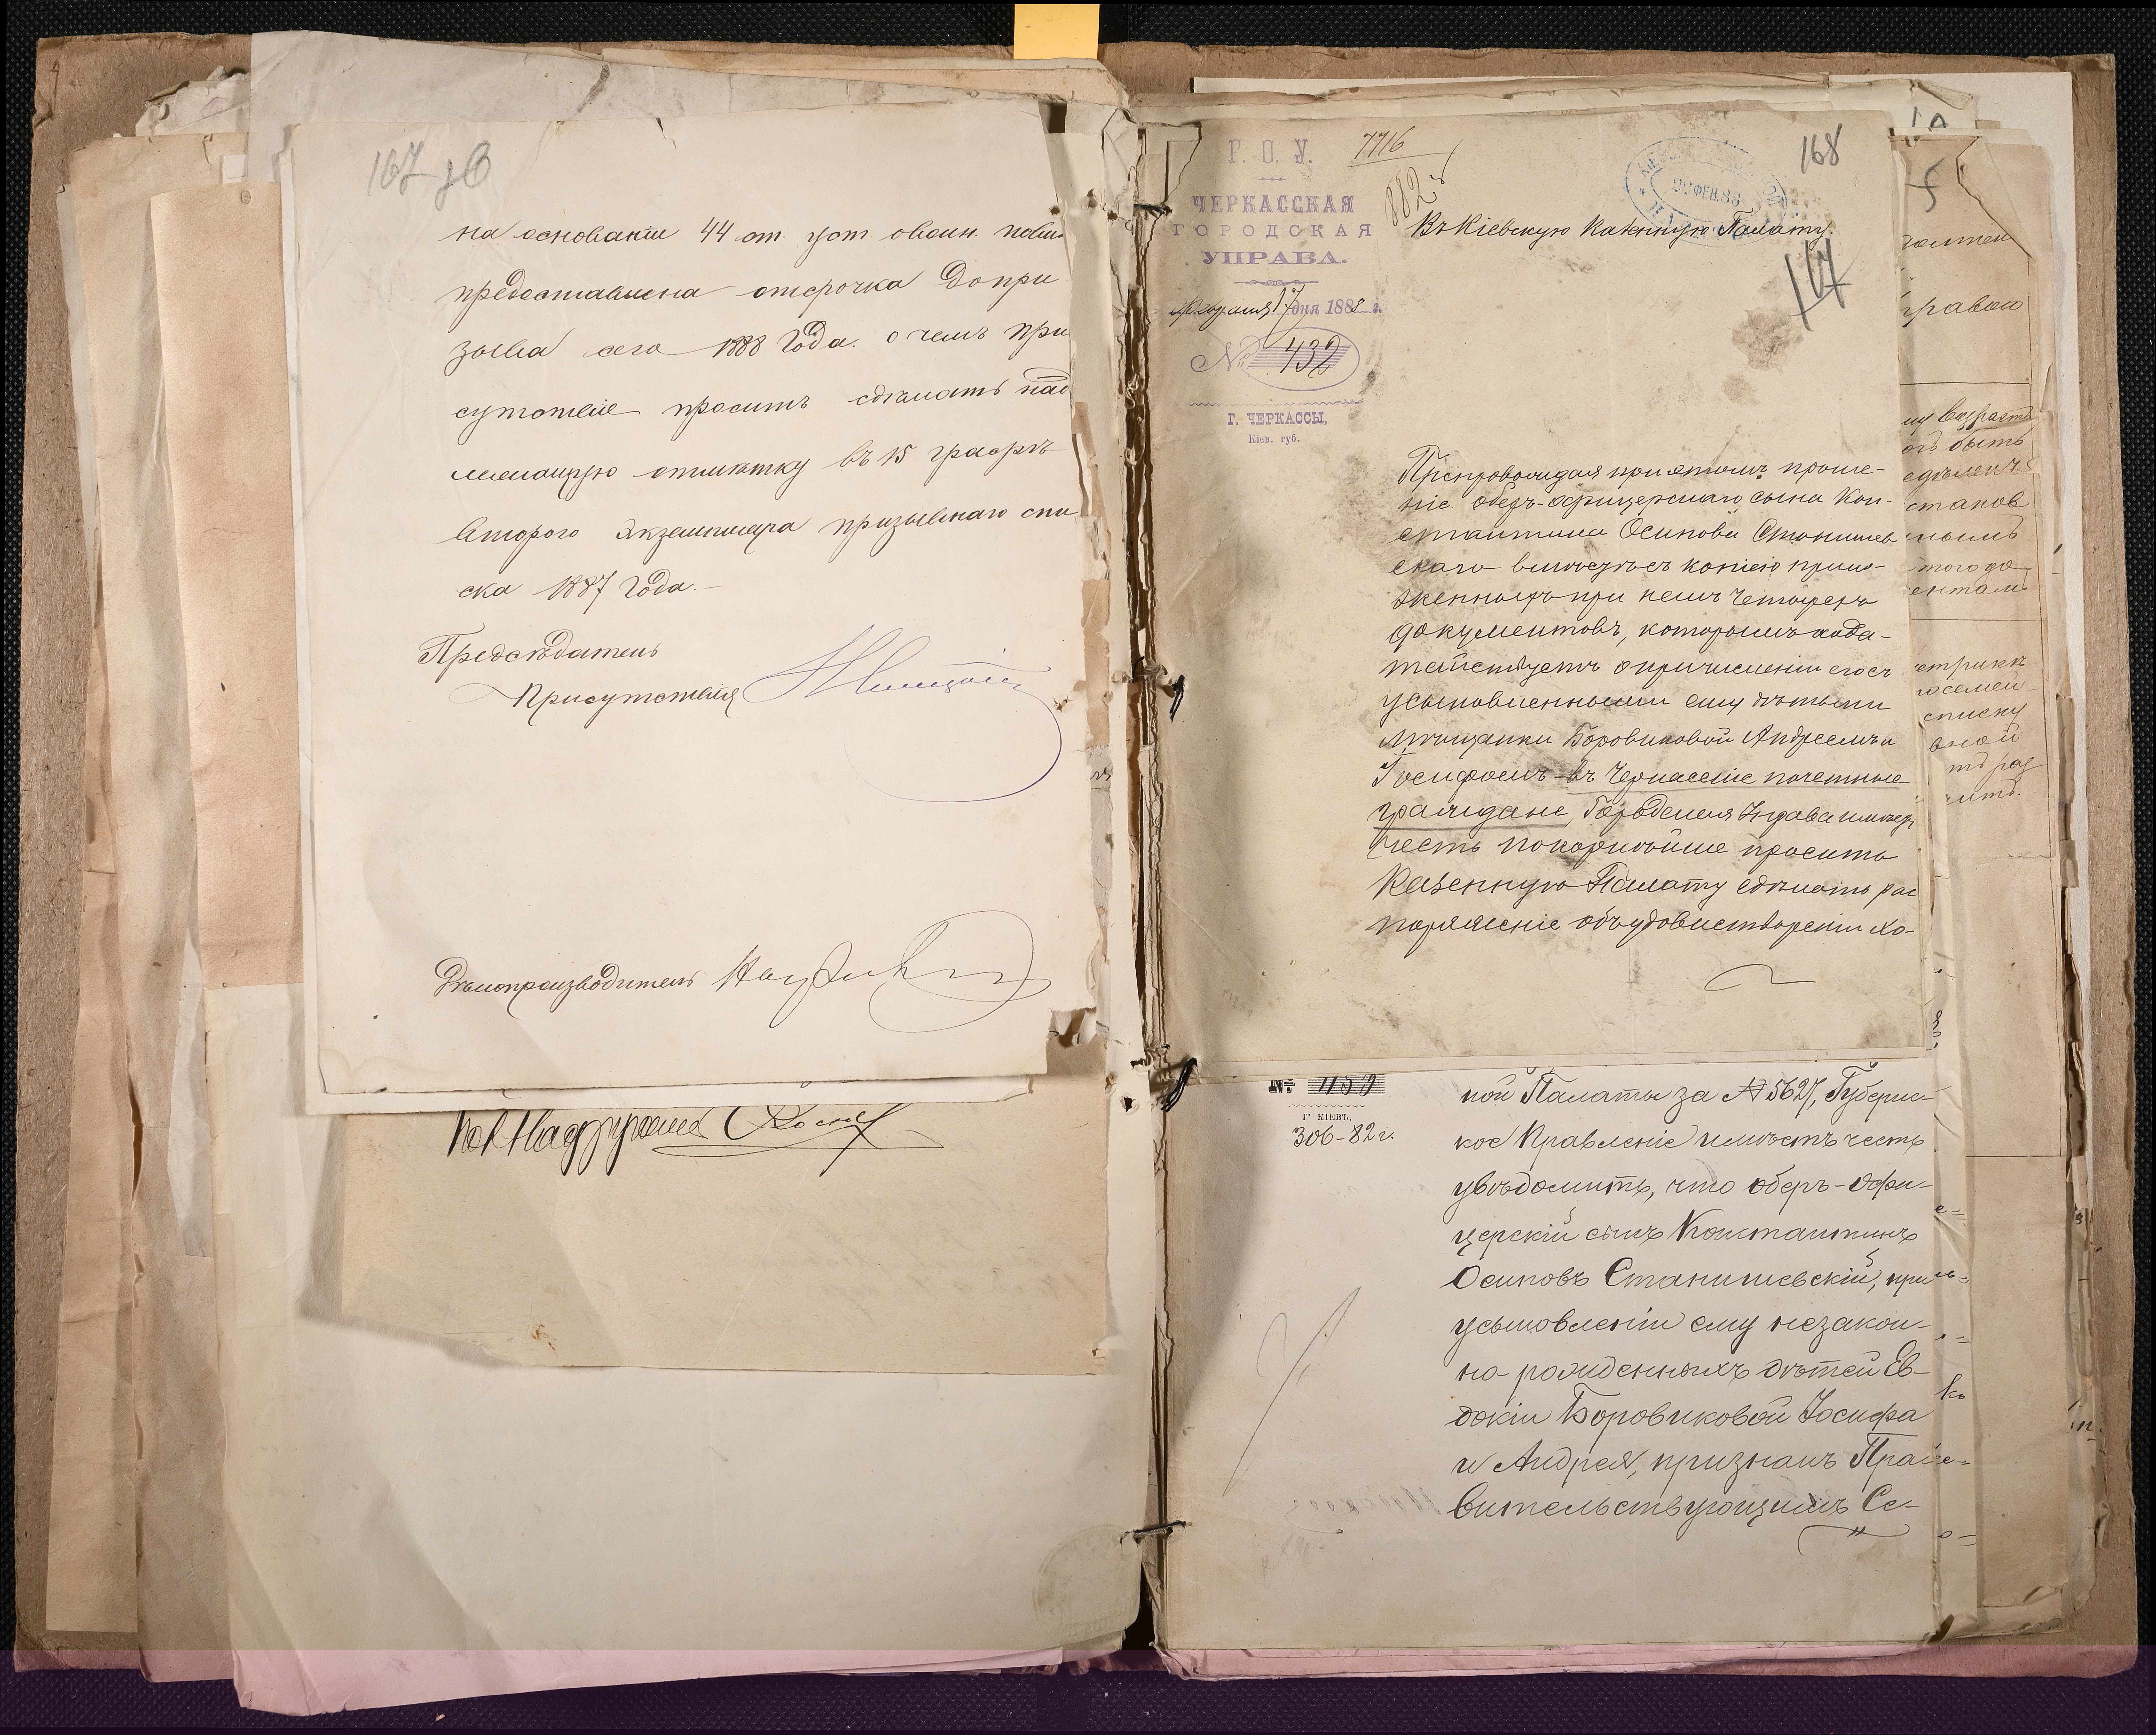 167 зв
на основании 44 ст. уст. о воин. повин.
предоставлена отсрочка до при
зыва сего 1888 года. о чемъ при
сутствие проситъ сдѣлать над
лежащую отмѣтку въ 15 графѣ
второго экземпляра призывнаго спи
ска 1887 года.-
Предсѣдатель
Присутствія
Дѣлопроизводитель
168
Г. О. У.
7716
882
ЧЕРКАССКАЯ
ГОРОДСКАЯ
УПРАВА.
Февраля 17 дня 1888 г.
№ 432
Г. ЧЕРКАССЫ,
Кіев. губ.
Въ Кіевскую Казенную Палату.
Препровождая при этомъ проше-
ніе оберъ-офицерскаго сына Кон-
стантина Осипова Станишев
скаго вмѣстѣ съ копіею прило-
женныхъ при немъ четырехъ
документовъ, которымъ хода-
тайствуетъ о причисленіи его съ
усыновленными ему дѣтьми
мѣщанки Боровиковой Андреемъ и
Іосифомъ въ Черкасскіе почетные
граждане, Городская Управа имѣетъ
честь покорнѣйше просить
Казенную Палату сдѣлать рас
поряженіе объ удовлетвореніи хо-
№ 1153
Г. КІЕВЪ.
306-82 г.
ной Палаты за № 5627, Губернс-
кое Правленіе имѣетъ честь
увѣдомить, что оберъ-офи-
церскій сынъ Константинъ
Осиповъ Станишевскій, при
усыновленіи ему незакон-
но-рожденныхъ дѣтей Ев-
докіи Боровиковой Іосифа
и Андрея, признанъ Пра-
вительствующимъ Се-